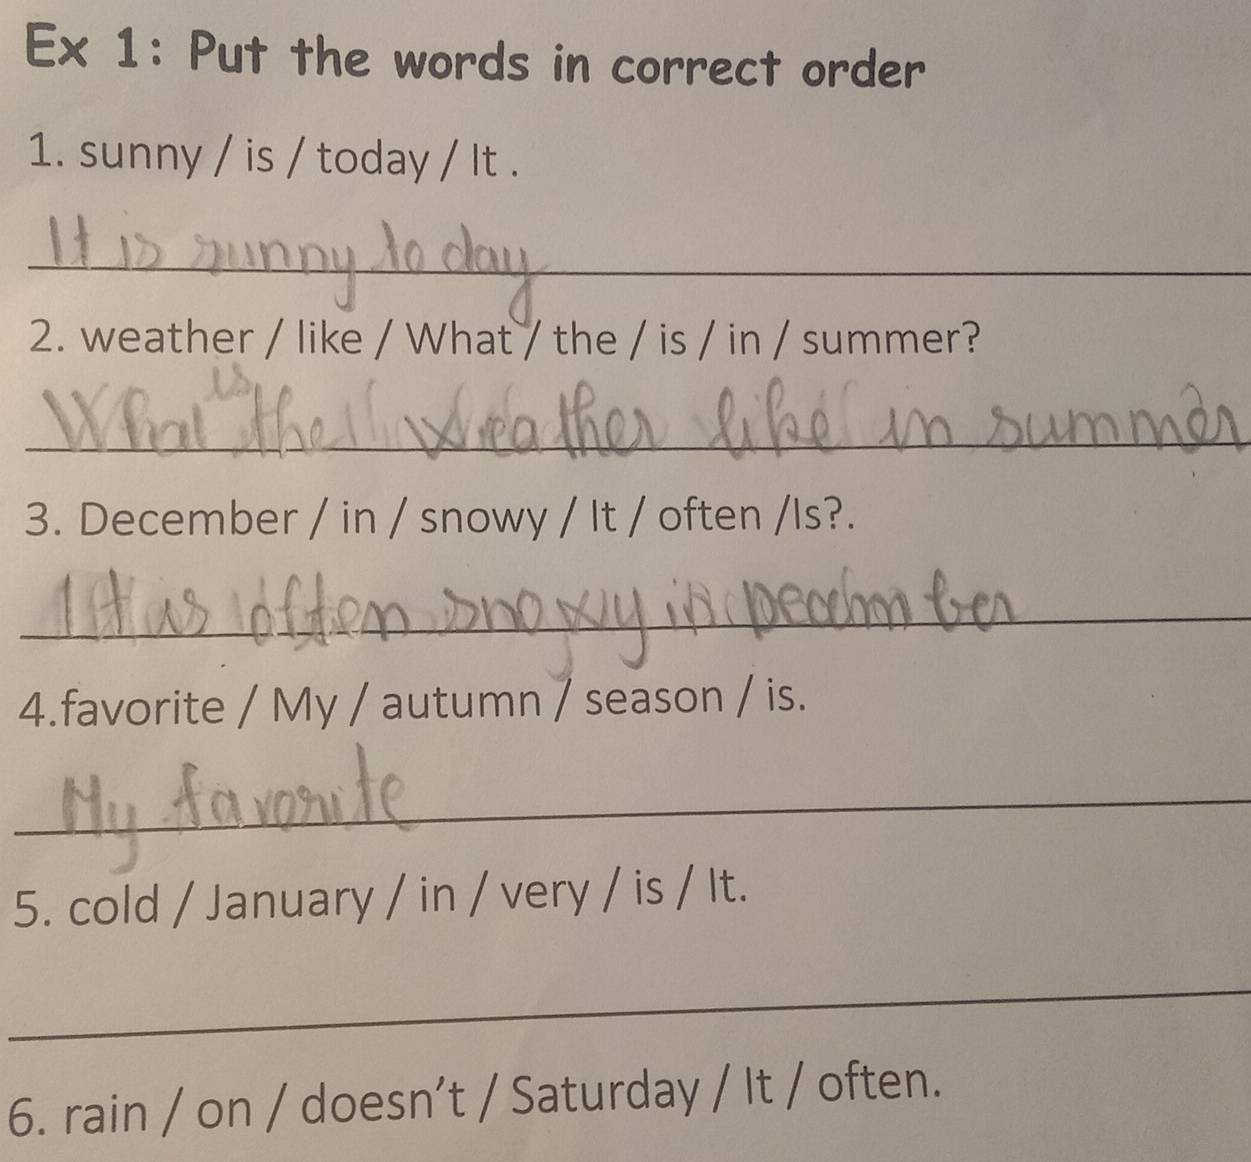 Ex 1: Put the words in correct order
1. sunny / is / today / It .
It is sunny today
2. weather / like / What / the / is / in / summer?
is
What the weather like in summer
3. December / in / snowy / It / often /Is?.
It is often snowy in Decembber
4.favorite / My / autumn / season / is.
My favorite
5. cold / January / in / very / is / It.
6. rain / on / doesn't / Saturday / It / often.